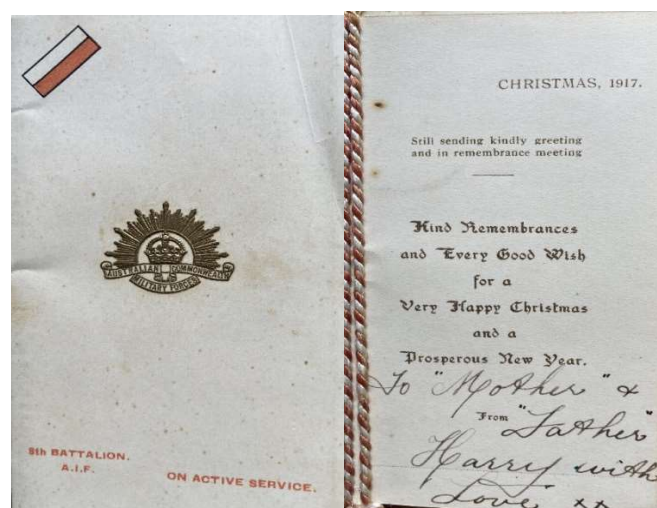 AUSTRALIAN COMMONWEALTH
MILITARY FORCES
8th BATTALION,
A.I.F.
ON ACTIVE SERVICE.
CHRISTMAS, 1917.
Still sending kindly greeting
and in remembrance meeting
Kind Remembrances
and Every Good Wish
for a
Very Happy Christmas
and a
Prosperous New Year.
To "Mother" &
From "Father"
Harry with
Love xx